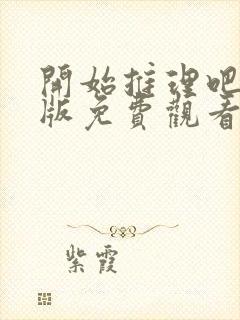 開始推理吧
版免費觀看
紫霞